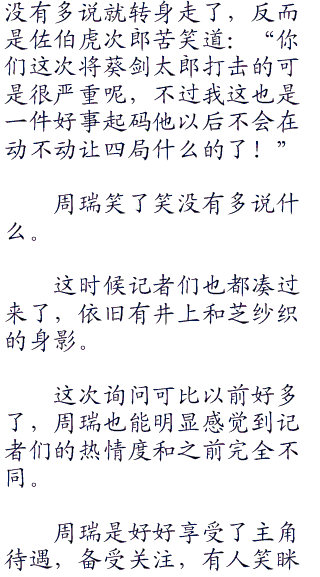 没有多说就转身走了，反而
是佐伯虎次郎苦笑道：“你
们这次将葵剑太郎打击的可
是很严重呢，不过我这也是
一件好事起码他以后不会在
动不动让四局什么的了！”
周瑞笑了笑没有多说什
么。
这时候记者们也都凑过
来了，依旧有井上和芝纱织
的身影。
这次询问可比以前好多
了，周瑞也能明显感觉到记
者们的热情度和之前完全不
同。
周瑞是好好享受了主角
待遇，备受关注，有人笑眯